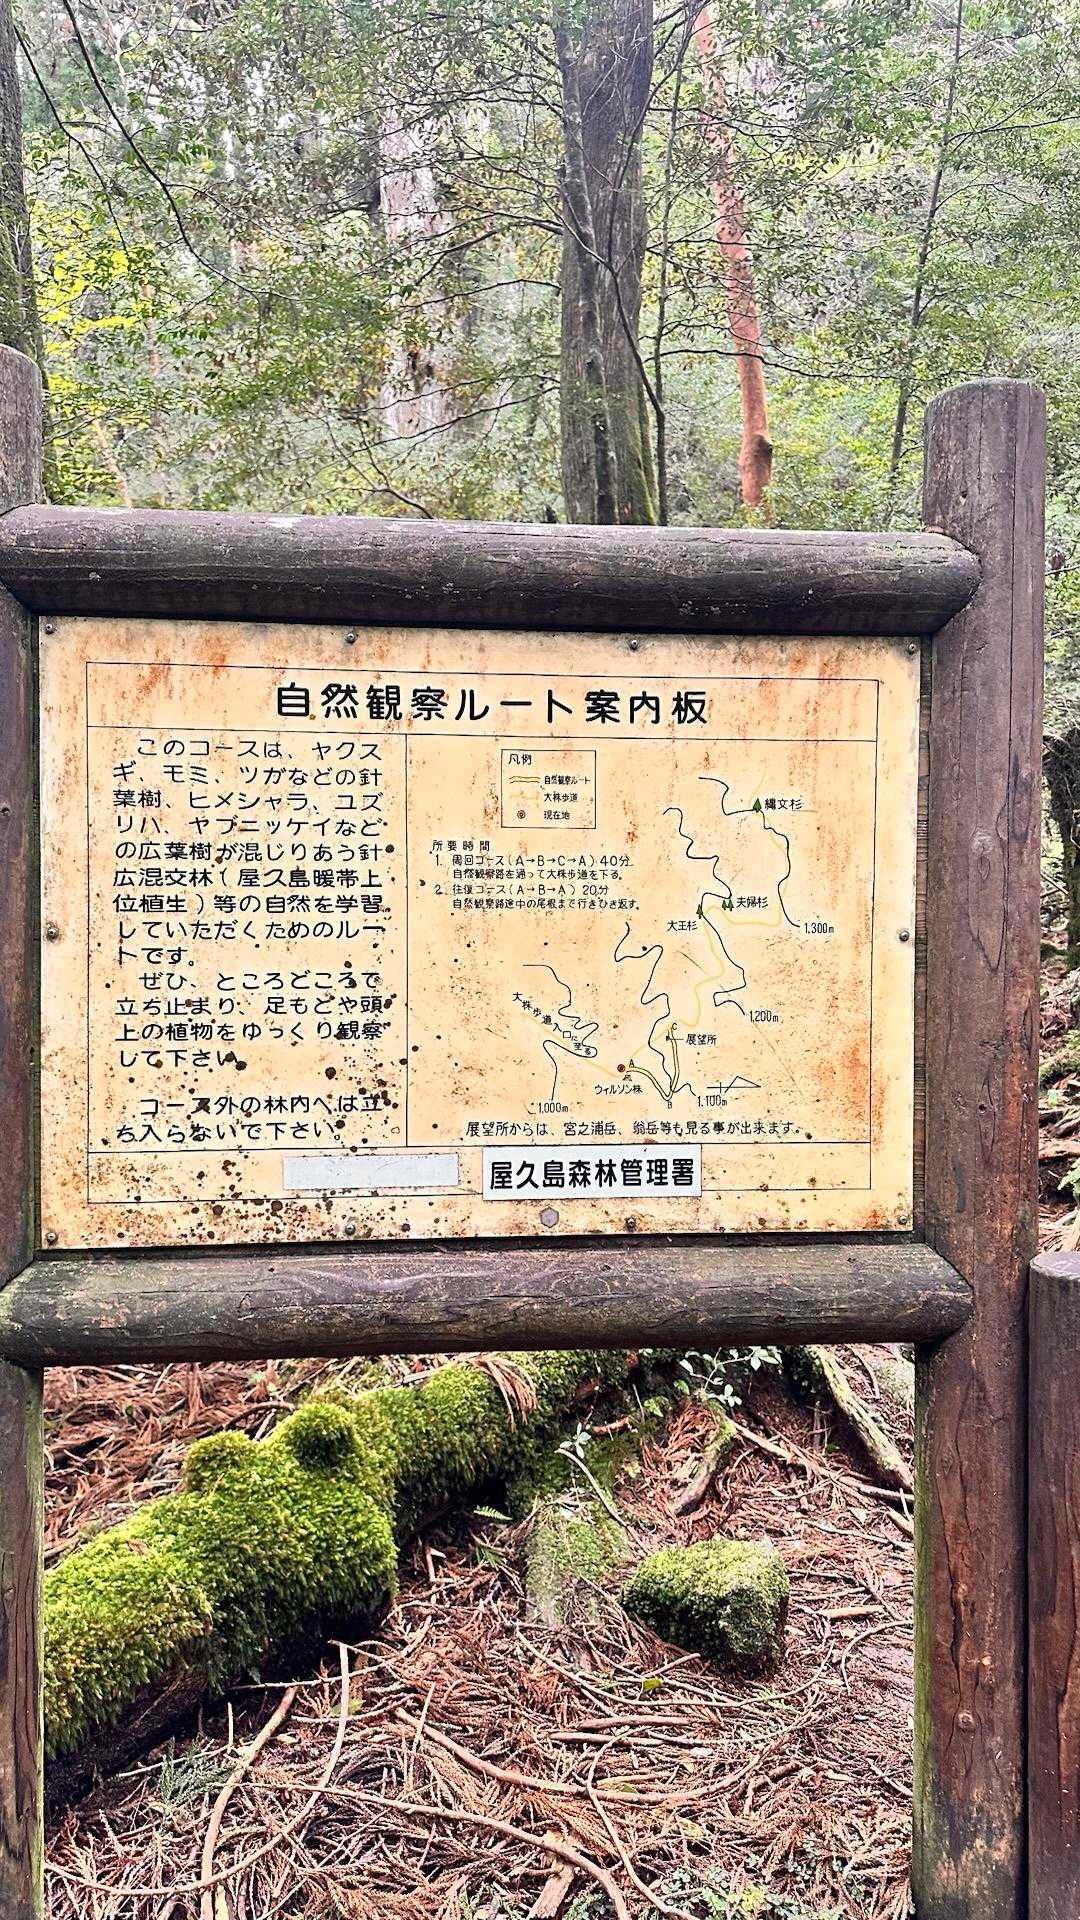 自然観察ルート案内板
このコースは、ヤクス
ギ、モミ、ツガなどの針
葉樹、ヒメシャラ、ユズ
リハ、ヤブニッケイなど
の広葉樹が混じりあう針
広混交林(屋久島暖帯上
位植生)等の自然を学習
していただくためのルー
トです。
ぜひ、ところどころで
立ち止まり、足もとや頭
上の植物をゆっくり観察
して下さい。
コース外の林内へは立
ち入らないで下さい。
凡例
自然観察ルート
大株歩道
現在地
所要時間
1. 周回コース(A→B→C→A)40分
自然観察路を通って大株歩道を下る。
2. 往復コース(A→B→A)20分
自然観察路途中の尾根まで行きひき返す。
縄文杉
夫婦杉
大王杉
1,300m
1,200m
大株歩道入口に至る
C
展望所
A
ウィルソン株
B
1,100m
1,000m
展望所からは、宮之浦岳、翁岳等も見る事が出来ます。
屋久島森林管理署